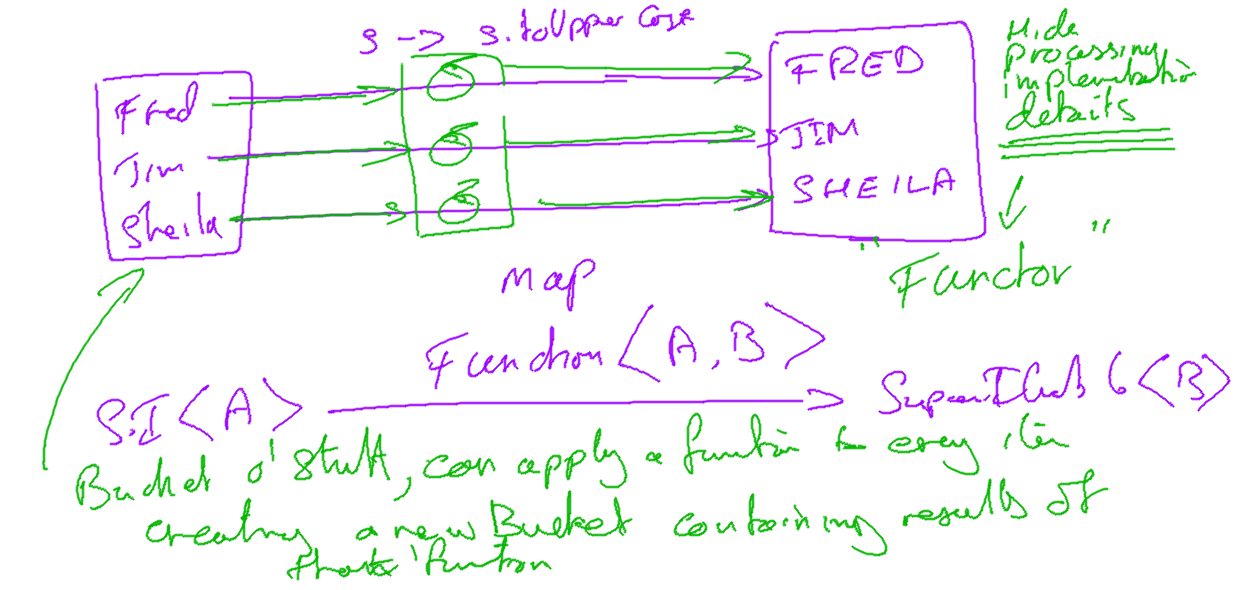 s -> s.toUpperCase
Fred
Jim
Sheila
FRED
JIM
SHEILA
Hide
processing,
implementation
details
"Functor"
Map
Function<A,B>
S.I<A>
<B>
Bucket o' Stuff, can apply a function to every item
creating a new Bucket containing results of
that function